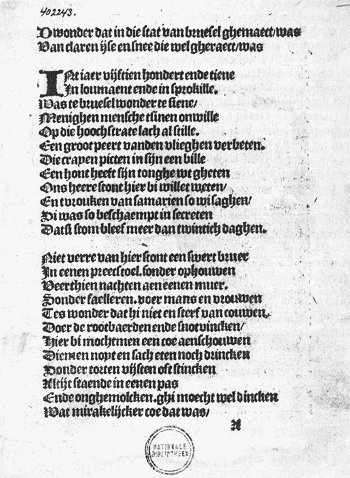 402243.
D wonder dat in die stat van bruesel ghemaect/was
Van claren ijse en snee die wel gheraect/was
INt iaer vijftien hondert ende tiene
In loumaent ende in sprokille.
Was te bruesel wonder te siene/
Menighen mensche tsinen onwille
Op die hoochstrate lach al stille.
Een groot peert vanden vlieghen verbeten.
Die crayen picten in sijn een bille
Een hont heeft sijn tonghe wt gheten
Ons heere stont hier bi willet weten/
En tvrouken van samarien so wi saghen/
Hi was so beschaempt in secreten
Datst stom bleef meer dan twintich daghen.
Niet verre van hier stont een swert bruer
In eenen preecstoel. sonder ophouwen
Veerthien nachten aen eenen muer.
Sonder faelleren. voer mans en vrouwen
Tes wonder dat hi niet en sterf van couwen.
Doer de rootbaerden ende snotvincken/
Hier bi mochtmen een coe aenschouwen
Diemen noyt en sach eten noch drincken
Sonder torten vijsten oft stincken
Altijt staende in eenen pas
Ende onghemolcken. ghi moecht wel dincken
Wat mirakelijcker coe dat was/
A
NATIONALE
BIBLIOTHEEK